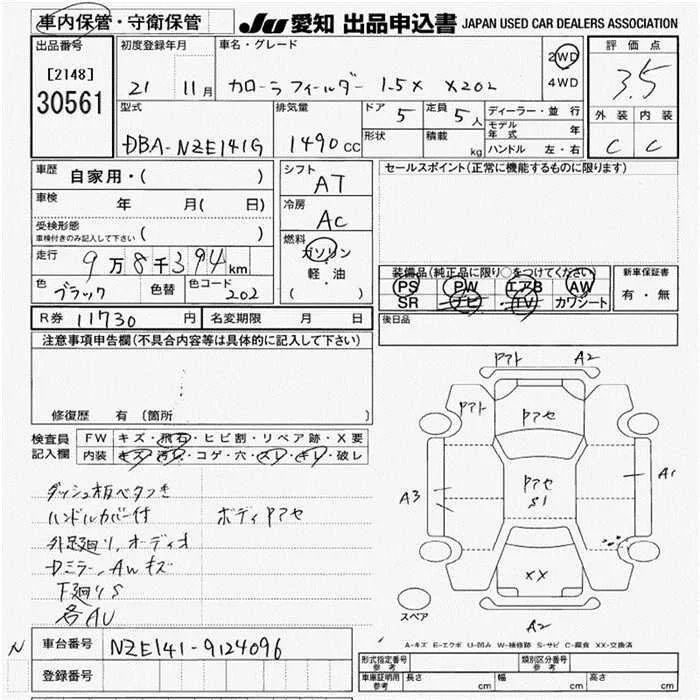 車内保管・守衛保管 JU 愛知 出品申込書 JAPAN USED CAR DEALERS ASSOCIATION
出品番号
[2148]
30561
初度登録年月
21 11月
車名・グレード
カローラフィールダー 1.5X X202
2WD
4WD
評価点
3.5
外装 内装
C C
型式
DBA-NZE141G
排気量
1490cc
ドア 5
定員 5人
形状
積載 kg
ディーラー・並行
モデル年式 年
ハンドル 左・右
車歴 自家用・( )
車検 年 月( 日)
受検形態
車検付きのみ記入して下さい ( )
走行 9万8千394km
色 ブラック 色替 色コード 202
シフト
AT
冷房
AC
燃料
ガソリン
軽・油
( )
セールスポイント(正常に機能するものに限ります)
装備品(純正品に限り○をつけてください)
PS PW エアB AW
SR ナビ TV カワシート
新車保証書
有・無
R券 11730円 名変期限 月 日
後日品
注意事項申告欄(不具合内容等は具体的に記入して下さい)
修復歴 有 [箇所
検査員記入欄
FW キズ・飛石・ヒビ割・リペア跡・X要
内装 キズ・汚レ・コゲ・穴・スレ・キレ・破レ
ダッシュ板ベタつき
ハンドルカバー付 ボディPアセ
外足廻り、オーディオ
Dミラー、AWキズ
下廻りS
各AU
Pアト A2
Pアト
Pアセ
A3
Pアセ
S1
A1
XX
スペア
A2
A-キズ E-エクボ U-凹み W-補修跡 S-サビ C-腐食 XX-交換済
N
車台番号 NZE141-9124096
登録番号
形式指定番号
参考
類別区分番号
参考
車庫証明用
参考
長さ cm 幅 cm 高さ cm